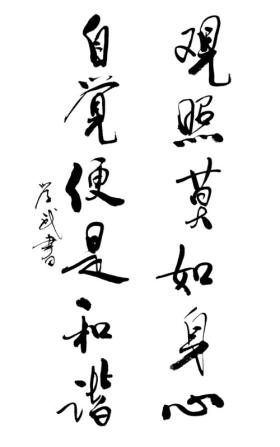 观照莫如身心
自觉便是和谐
学武书